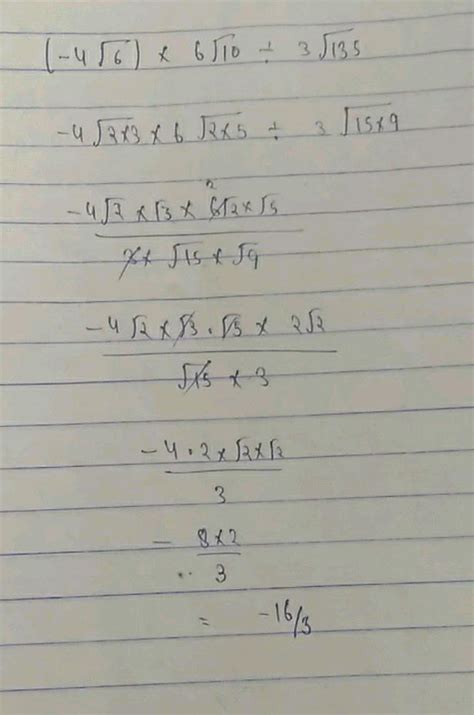 (-4√6) × 6√10 ÷ 3√135
-4√2×3 × 6√2×5 ÷ 3√15×9
-4√2 × √3 × 6√2 × √5
2
3 × √15 × √9
-4√2 × √3 · √5 × 2√2
√15 × 3
-4 · 2 × √2 × √2
3
- 8×2
3
= -16/3